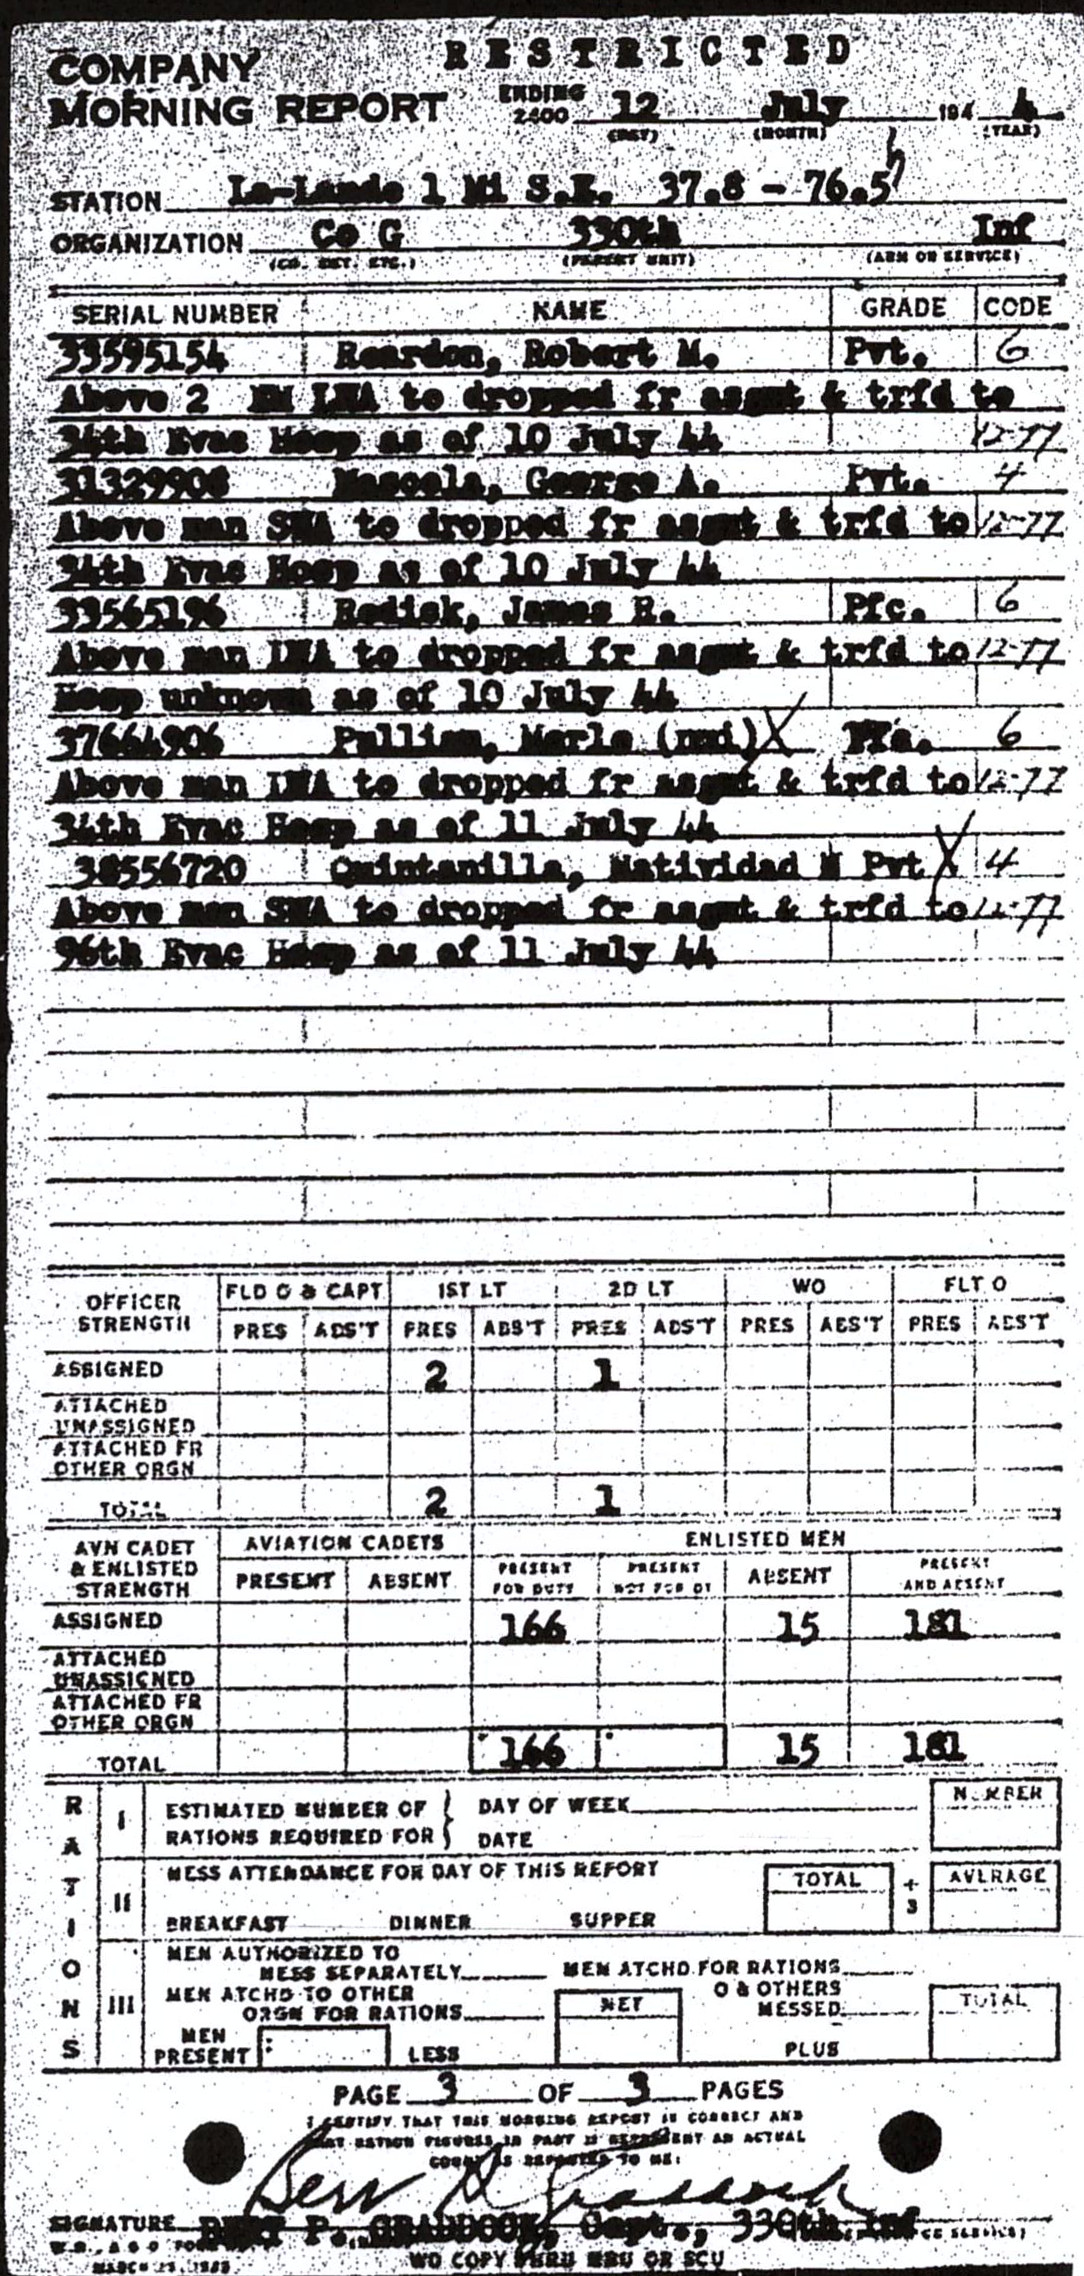 RESTRICTED
COMPANY
MORNING REPORT ENDING 2400 12 July 194 4
(DAY) (MONTH) (YEAR)
STATION La-Lande 1 Mi S.E. 37.8 - 76.5
ORGANIZATION Co G 330th Inf
(CO. DET. ETC.) (PARENT UNIT) (ARM OR SERVICE)
SERIAL NUMBER NAME GRADE CODE
33595154 Reardon, Robert M. Pvt. 6
Above 2 EM LWA to dropped fr asgmt & trfd to
34th Evac Hosp as of 10 July 44 12-77
31329908 Mascola, George A. Pvt. 4
Above man SWA to dropped fr asgmt & trfd to 12-77
34th Evac Hosp as of 10 July 44
33565196 Redisk, James R. Pfc. 6
Above man LWA to dropped fr asgmt & trfd to 12-77
Hosp unknown as of 10 July 44
37664906 Pulliam, Merle (nmi) X Pfc. 6
Above man LWA to dropped fr asgmt & trfd to 12-77
34th Evac Hosp as of 11 July 44
38556720 Quintanilla, Natividad M Pvt X 4
Above man SWA to dropped fr asgmt & trfd to 12-77
96th Evac Hosp as of 11 July 44
OFFICER STRENGTH FLD O & CAPT 1ST LT 2D LT WO FLT O
PRES ABS'T PRES ABS'T PRES ABS'T PRES ABS'T PRES ABS'T
ASSIGNED 2 1
ATTACHED
UNASSIGNED
ATTACHED FR
OTHER ORGN
TOTAL 2 1
AVN CADET & ENLISTED STRENGTH AVIATION CADETS ENLISTED MEN
PRESENT ABSENT PRESENT FOR DUTY PRESENT NOT FOR DY ABSENT PRESENT AND ABSENT
ASSIGNED 166 15 181
ATTACHED
UNASSIGNED
ATTACHED FR
OTHER ORGN
TOTAL 166 15 181
RATIONS
I ESTIMATED NUMBER OF RATIONS REQUIRED FOR DAY OF WEEK NUMBER
DATE
II MESS ATTENDANCE FOR DAY OF THIS REPORT TOTAL ÷ 3 AVERAGE
BREAKFAST DINNER SUPPER
III MEN AUTHORIZED TO
MESS SEPARATELY MEN ATCHD FOR RATIONS
MEN ATCHD TO OTHER
ORGN FOR RATIONS NET O & OTHERS MESSED TOTAL
MEN PRESENT LESS PLUS
PAGE 3 OF 3 PAGES
I CERTIFY THAT THIS MORNING REPORT IS CORRECT AND
THAT RATION FIGURES IN PART II REPRESENT AN ACTUAL
COUNT AS REPORTED TO ME:
SIGNATURE P. CRADDOCK, Capt., 330th Inf
MARCH
WD COPY THRU MRU OR SCU